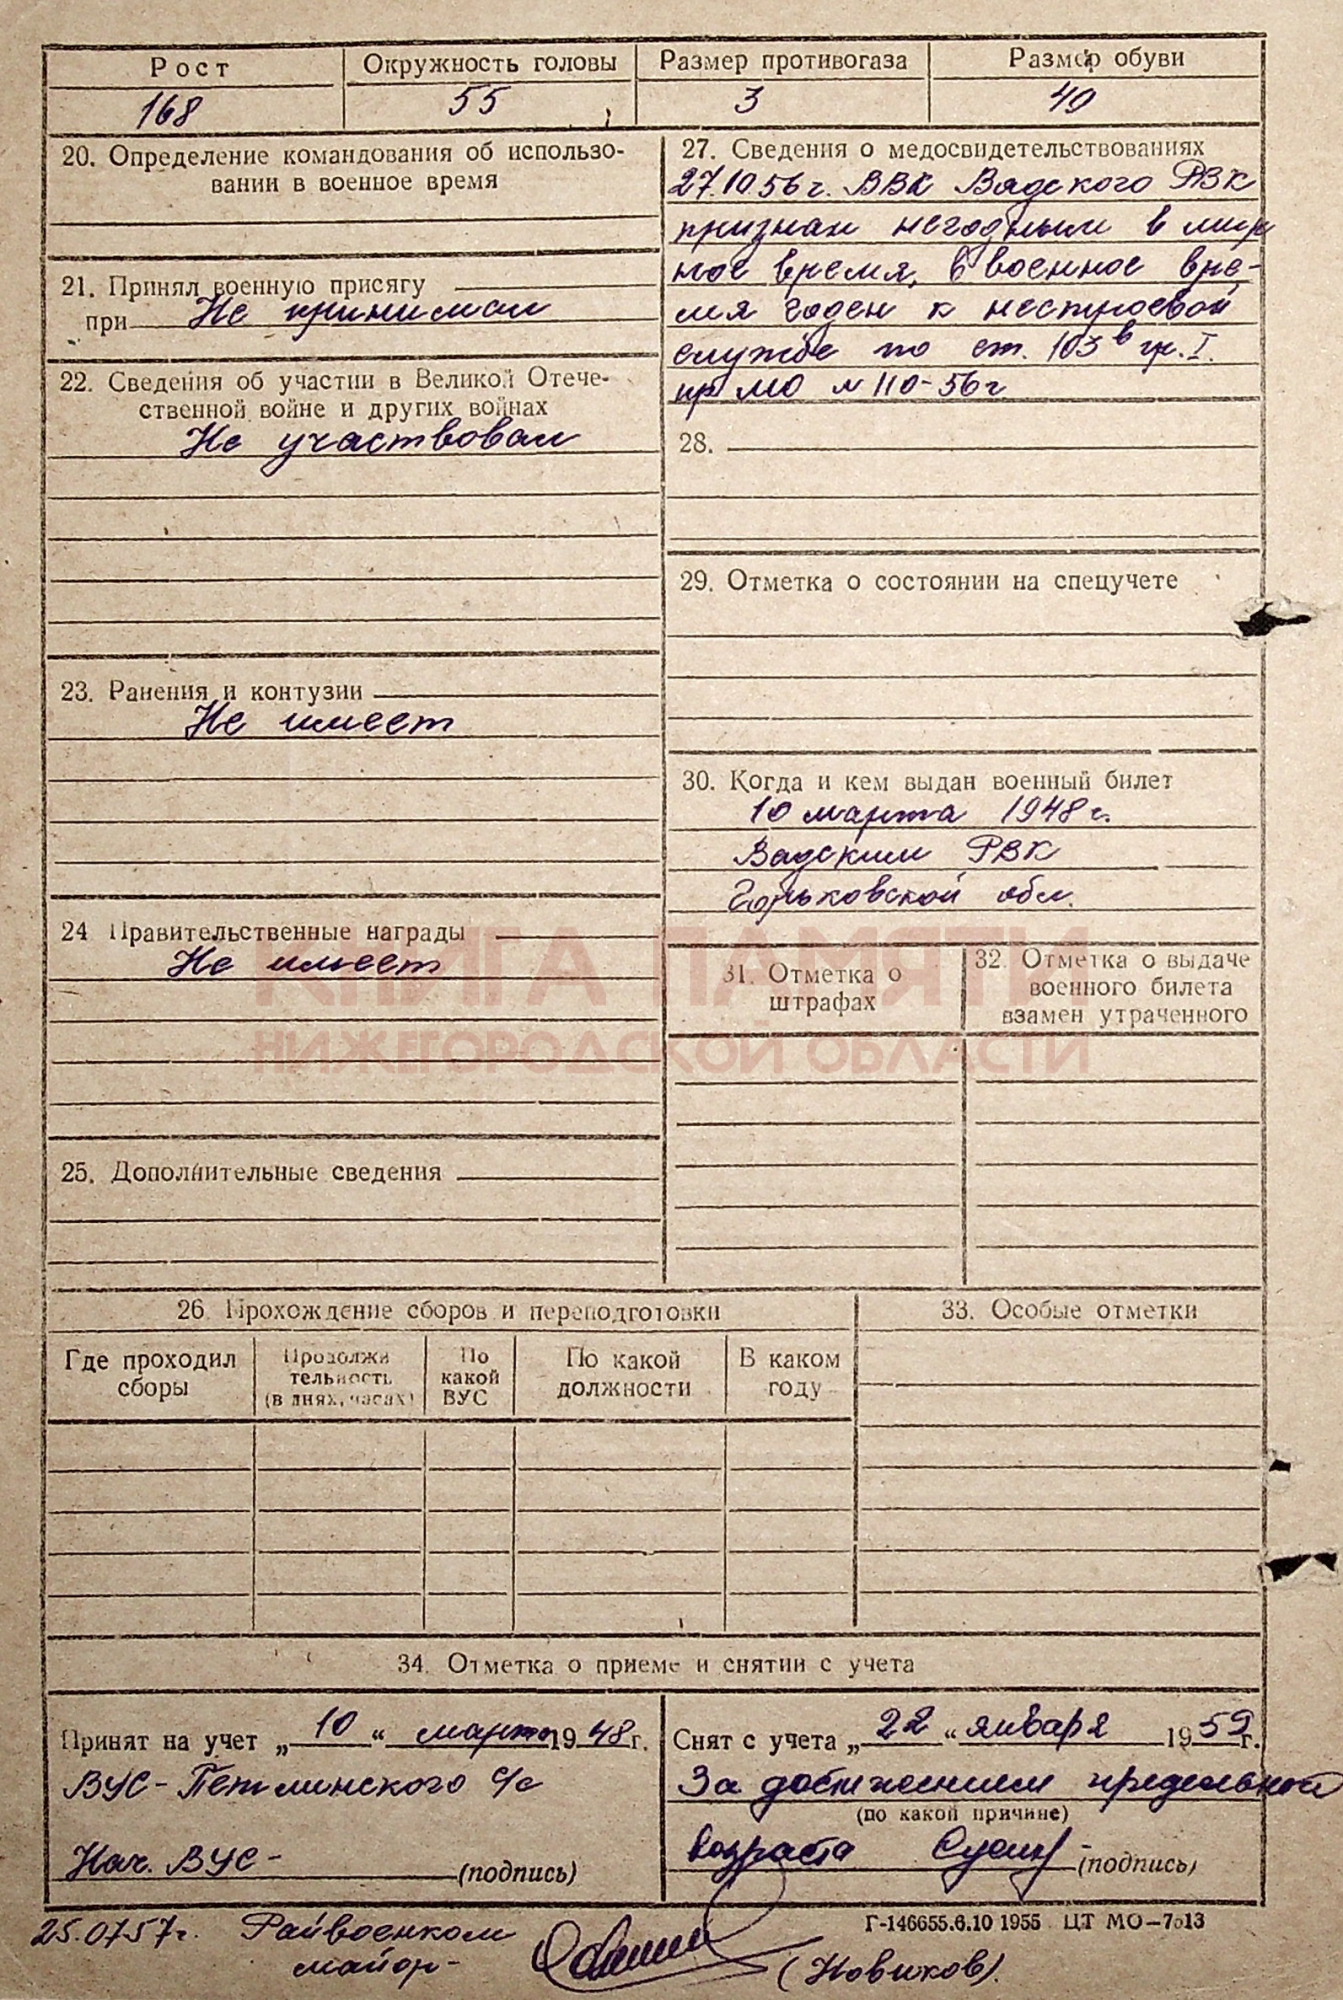 Рост
Окружность головы
Размер противогаза
Размер обуви
168
55
3
40
20. Определение командования об использо-
вании в военное время
21. Принял военную присягу
при Не принимал
22. Сведения об участии в Великой Отече-
ственной войне и других войнах
Не участвовал
23. Ранения и контузии
Не имеет
24 Правительственные награды
Не имеет
25. Дополнительные сведения
27. Сведения о медосвидетельствованиях
27.10.56г. ВВК Вадского РВК
признан негодным в мир
ное время, в военное вре-
мя годен к нестроевой
службе по ст. 103 в гр. I.
пр МО № 110-56г
28.
29. Отметка о состоянии на спецучете
30. Когда и кем выдан военный билет
10 марта 1948г.
Вадским РВК
Горьковской обл.
31. Отметка о
штрафах
32. Отметка о выдаче
военного билета
взамен утраченного
КНИГА ПАМЯТИ
НИЖЕГОРОДСКОЙ ОБЛАСТИ
26. Прохождение сборов и переподготовки
Где проходил
сборы
Продолжи
тельность
(в днях, часах)
По
какой
ВУС
По какой
должности
В каком
году
33. Особые отметки
34. Отметка о приеме и снятии с учета
Принят на учет „10“ марта 1948г.
ВУС - Петлинского с/с
Нач. ВУС - (подпись)
Снят с учета „22“ января 1959г.
За достижением предельной
(по какой причине)
возраста (подпись)
Г-146655.6.10 1955 ЦТ МО-7013
25.07.57г. Райвоенком
майор - (Новиков).